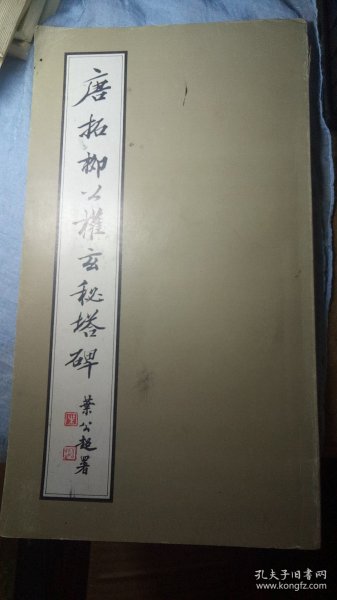 唐拓柳公權玄秘塔碑
葉公超署
孔夫子旧书网
www.kongfz.com